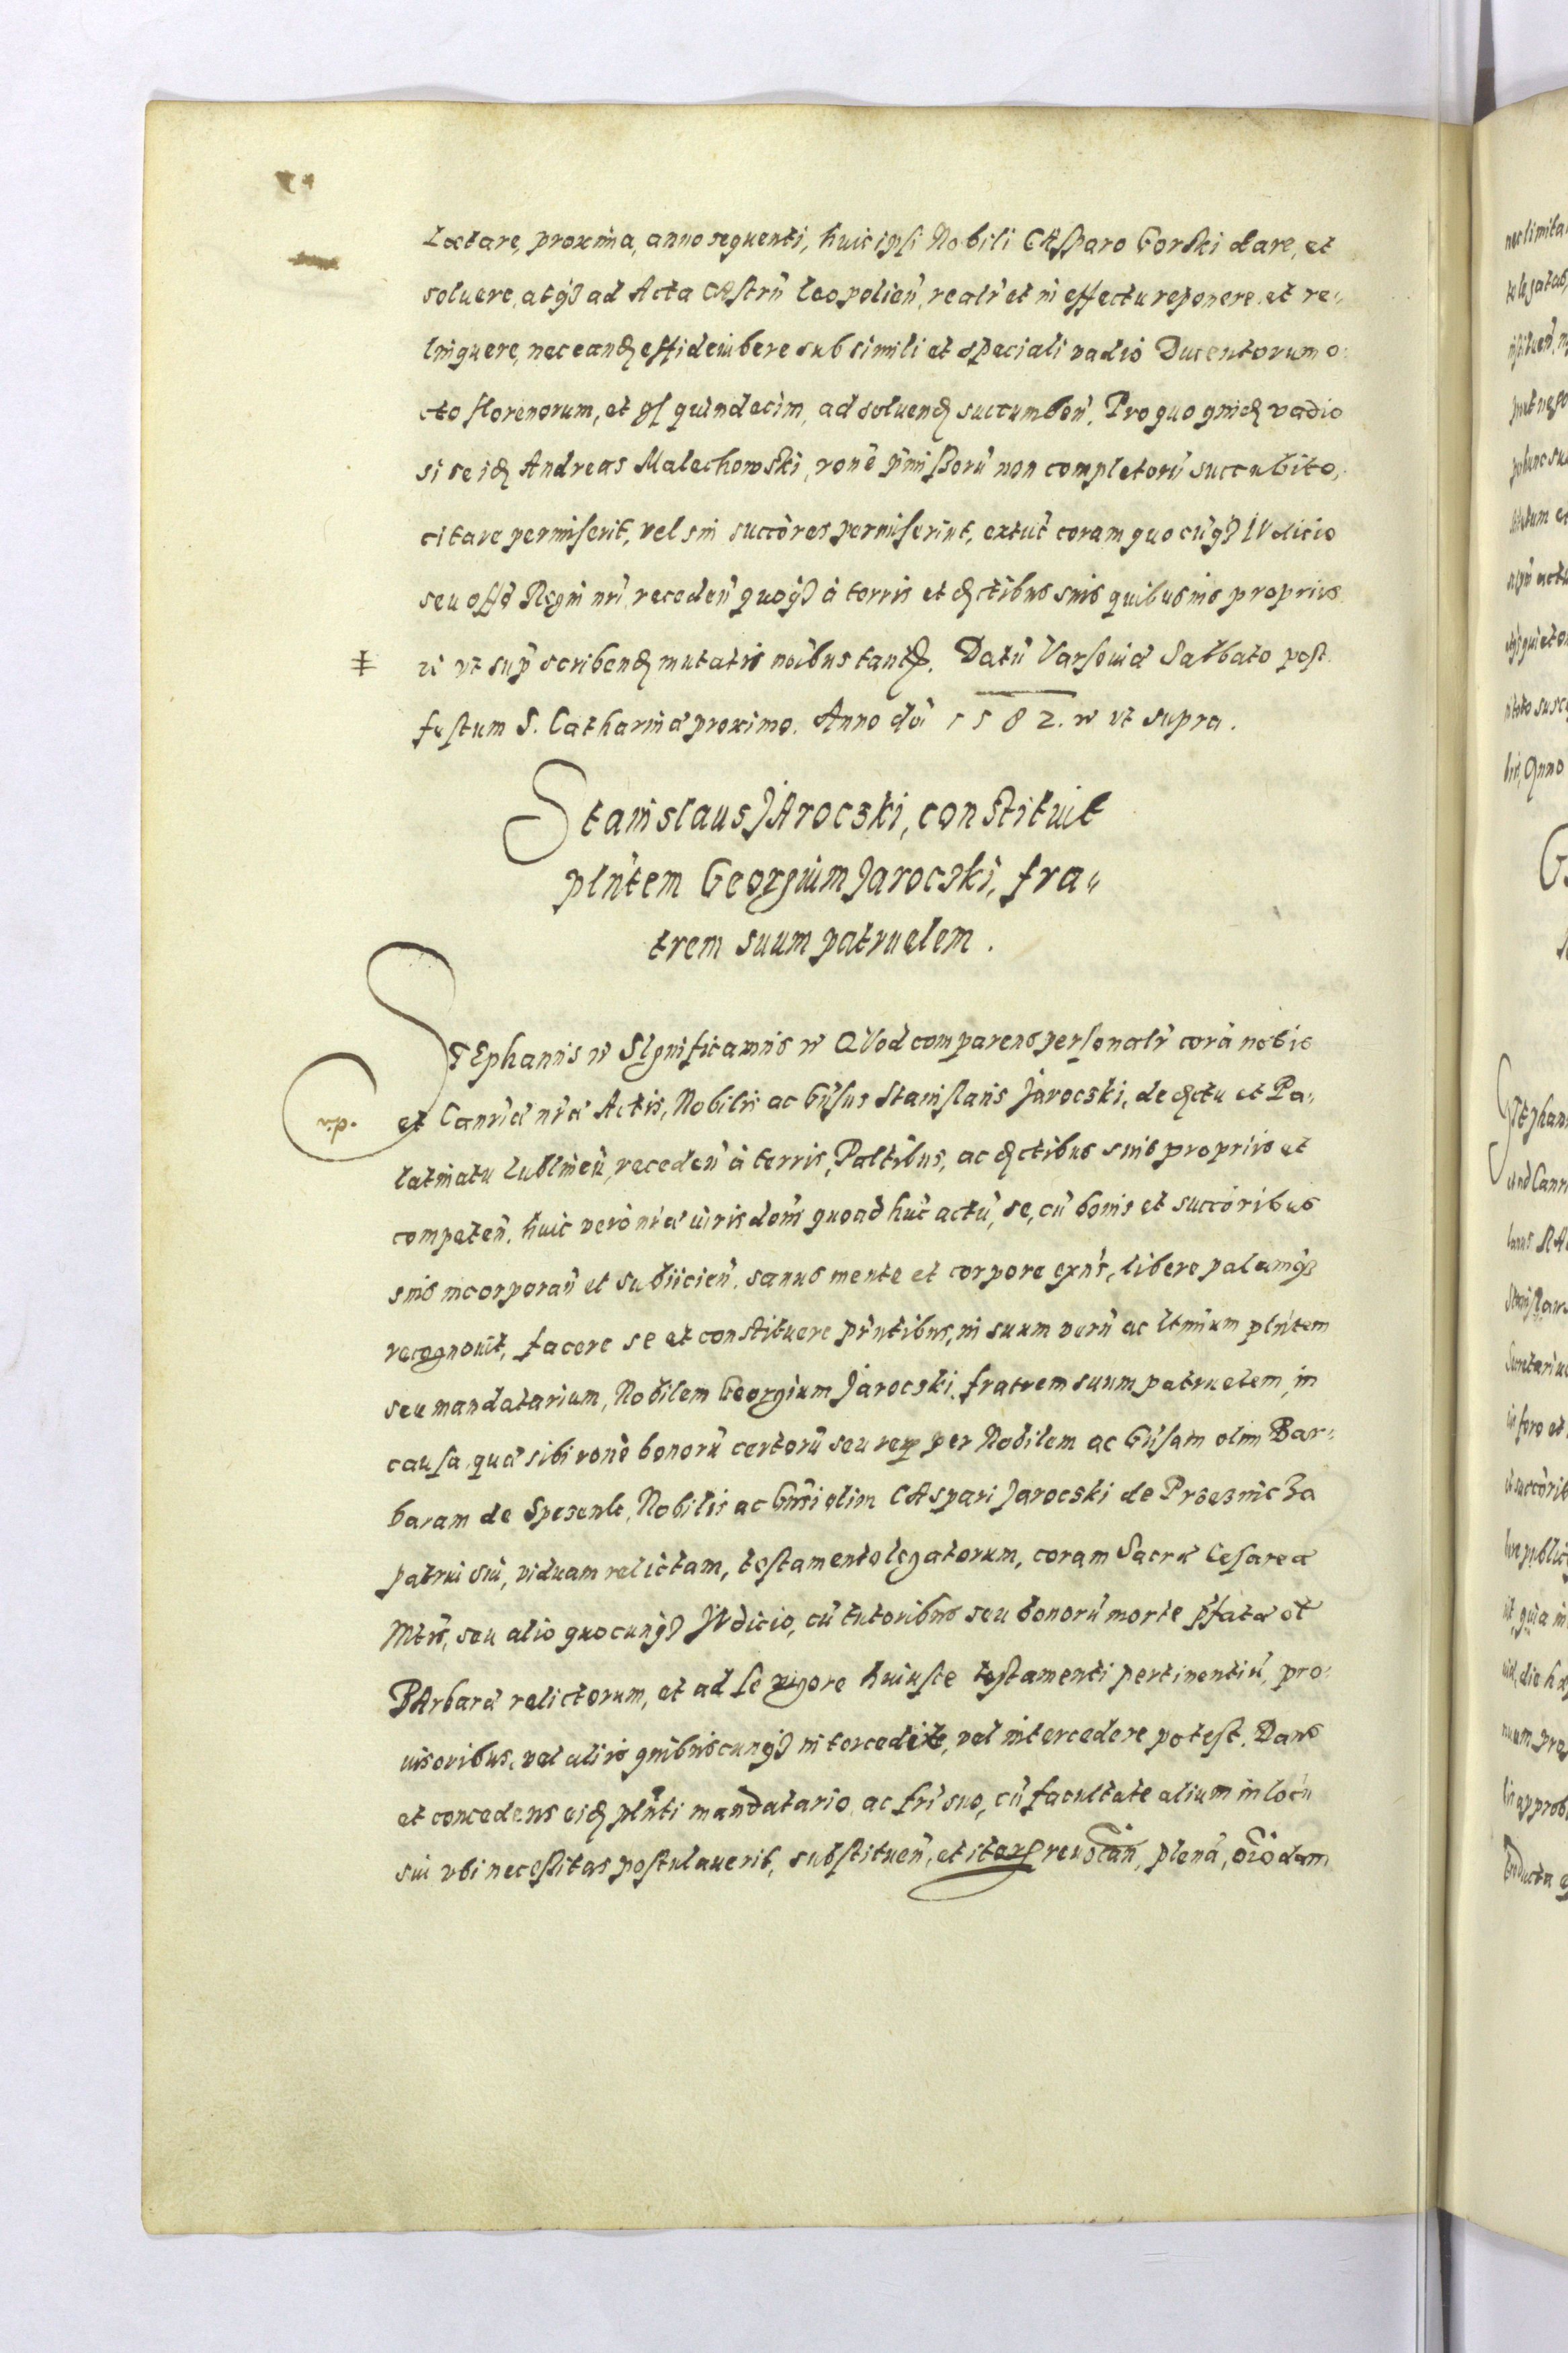 Lætare, proxima, anno sequenti, huic ipsi Nobili CAsparo Gorski dare, et
soluere, atq3 ad Acta CAstrn̄ Leopolien̄, realr̄ et in effectu reponere et re„
linquere, nec eand effideiubere sub simili et speciali vadio Ducentorum o„
cto florenorum, et gſ quindecim, ad soluend succumben̄. Pro quo quid vadio
si se id Andreas Malechowski, ron̄e p̄missorū non completorū succubito,
citare permiserit, vel sui succ̄ores permiserint, extūc coram quocūq3 IVdicio
seu off̄o Regni nr̄i, receden̄ quoq3 à terris et dictibus suis quibusuis proprijs
ꝛc̄ vt sup̄ scribend mutatis noībus tant. Datū Varsouiæ Sabbato post
festum S. Catharinæ proximo. Anno dn̄i 1582. ꝛc vt supra.
Stanislaus JArocski, constituit
pln̄tem Georgium Jarocski, fra„
trem suum patruelem.
STEphanus ꝛc SIgnificamus ꝛc QVod comparens personalr̄ corā nobis
et Canr̄iæ nr̄æ Actis, Nobilis ac Gn̄sus Stanislaus Jarocski, de dictu et Pa„
latinatu Lublinen̄, receden̄ à terris, Paltībus, ac dictibus suis proprijs et
competen̄. huic verò nr̄æ iurisdon̄i quoad hūc actū, se, cū bonis et succ̄oribus
suis incorporan̄ et subijcien̄. sanus mente et corpore exn̄s, libere palamq3
recognouit, facere se et constituere pn̄tibus, in suum verū ac ltīmum pln̄tem
seu mandatarium, Nobilem Georgium Jarocski, fratrem suum patruelem, in
causa, quæ sibi ron̄e bonorū certorū seu rerum per Nobilem ac Gn̄sam olim Bar„
baram de Spesenle, Nobilis ac Gn̄si olim CAspari Jarocski de Przeznicza
patrui sui, viduam relictam, testamento legatorum, coram Sacra Cesarea
Mtte, seu alio quocunq3 JVdicio, cū tutoribus seu bonorū morte p̄fatæ ol̄
BArbaræ relictorum, et ad se vigore huiusce testamenti pertinentiū, pro„
uisoribus, vel alijs quibuscunq3 intercedit, vel intercedere potest. Dans
et concedens eid pln̄ti mandatario, ac fr̄i suo, cū facultate alium in locū
sui vbi necessitas postulauerit, substituen̄, et iterum reuocan̄, plenā, oīodam